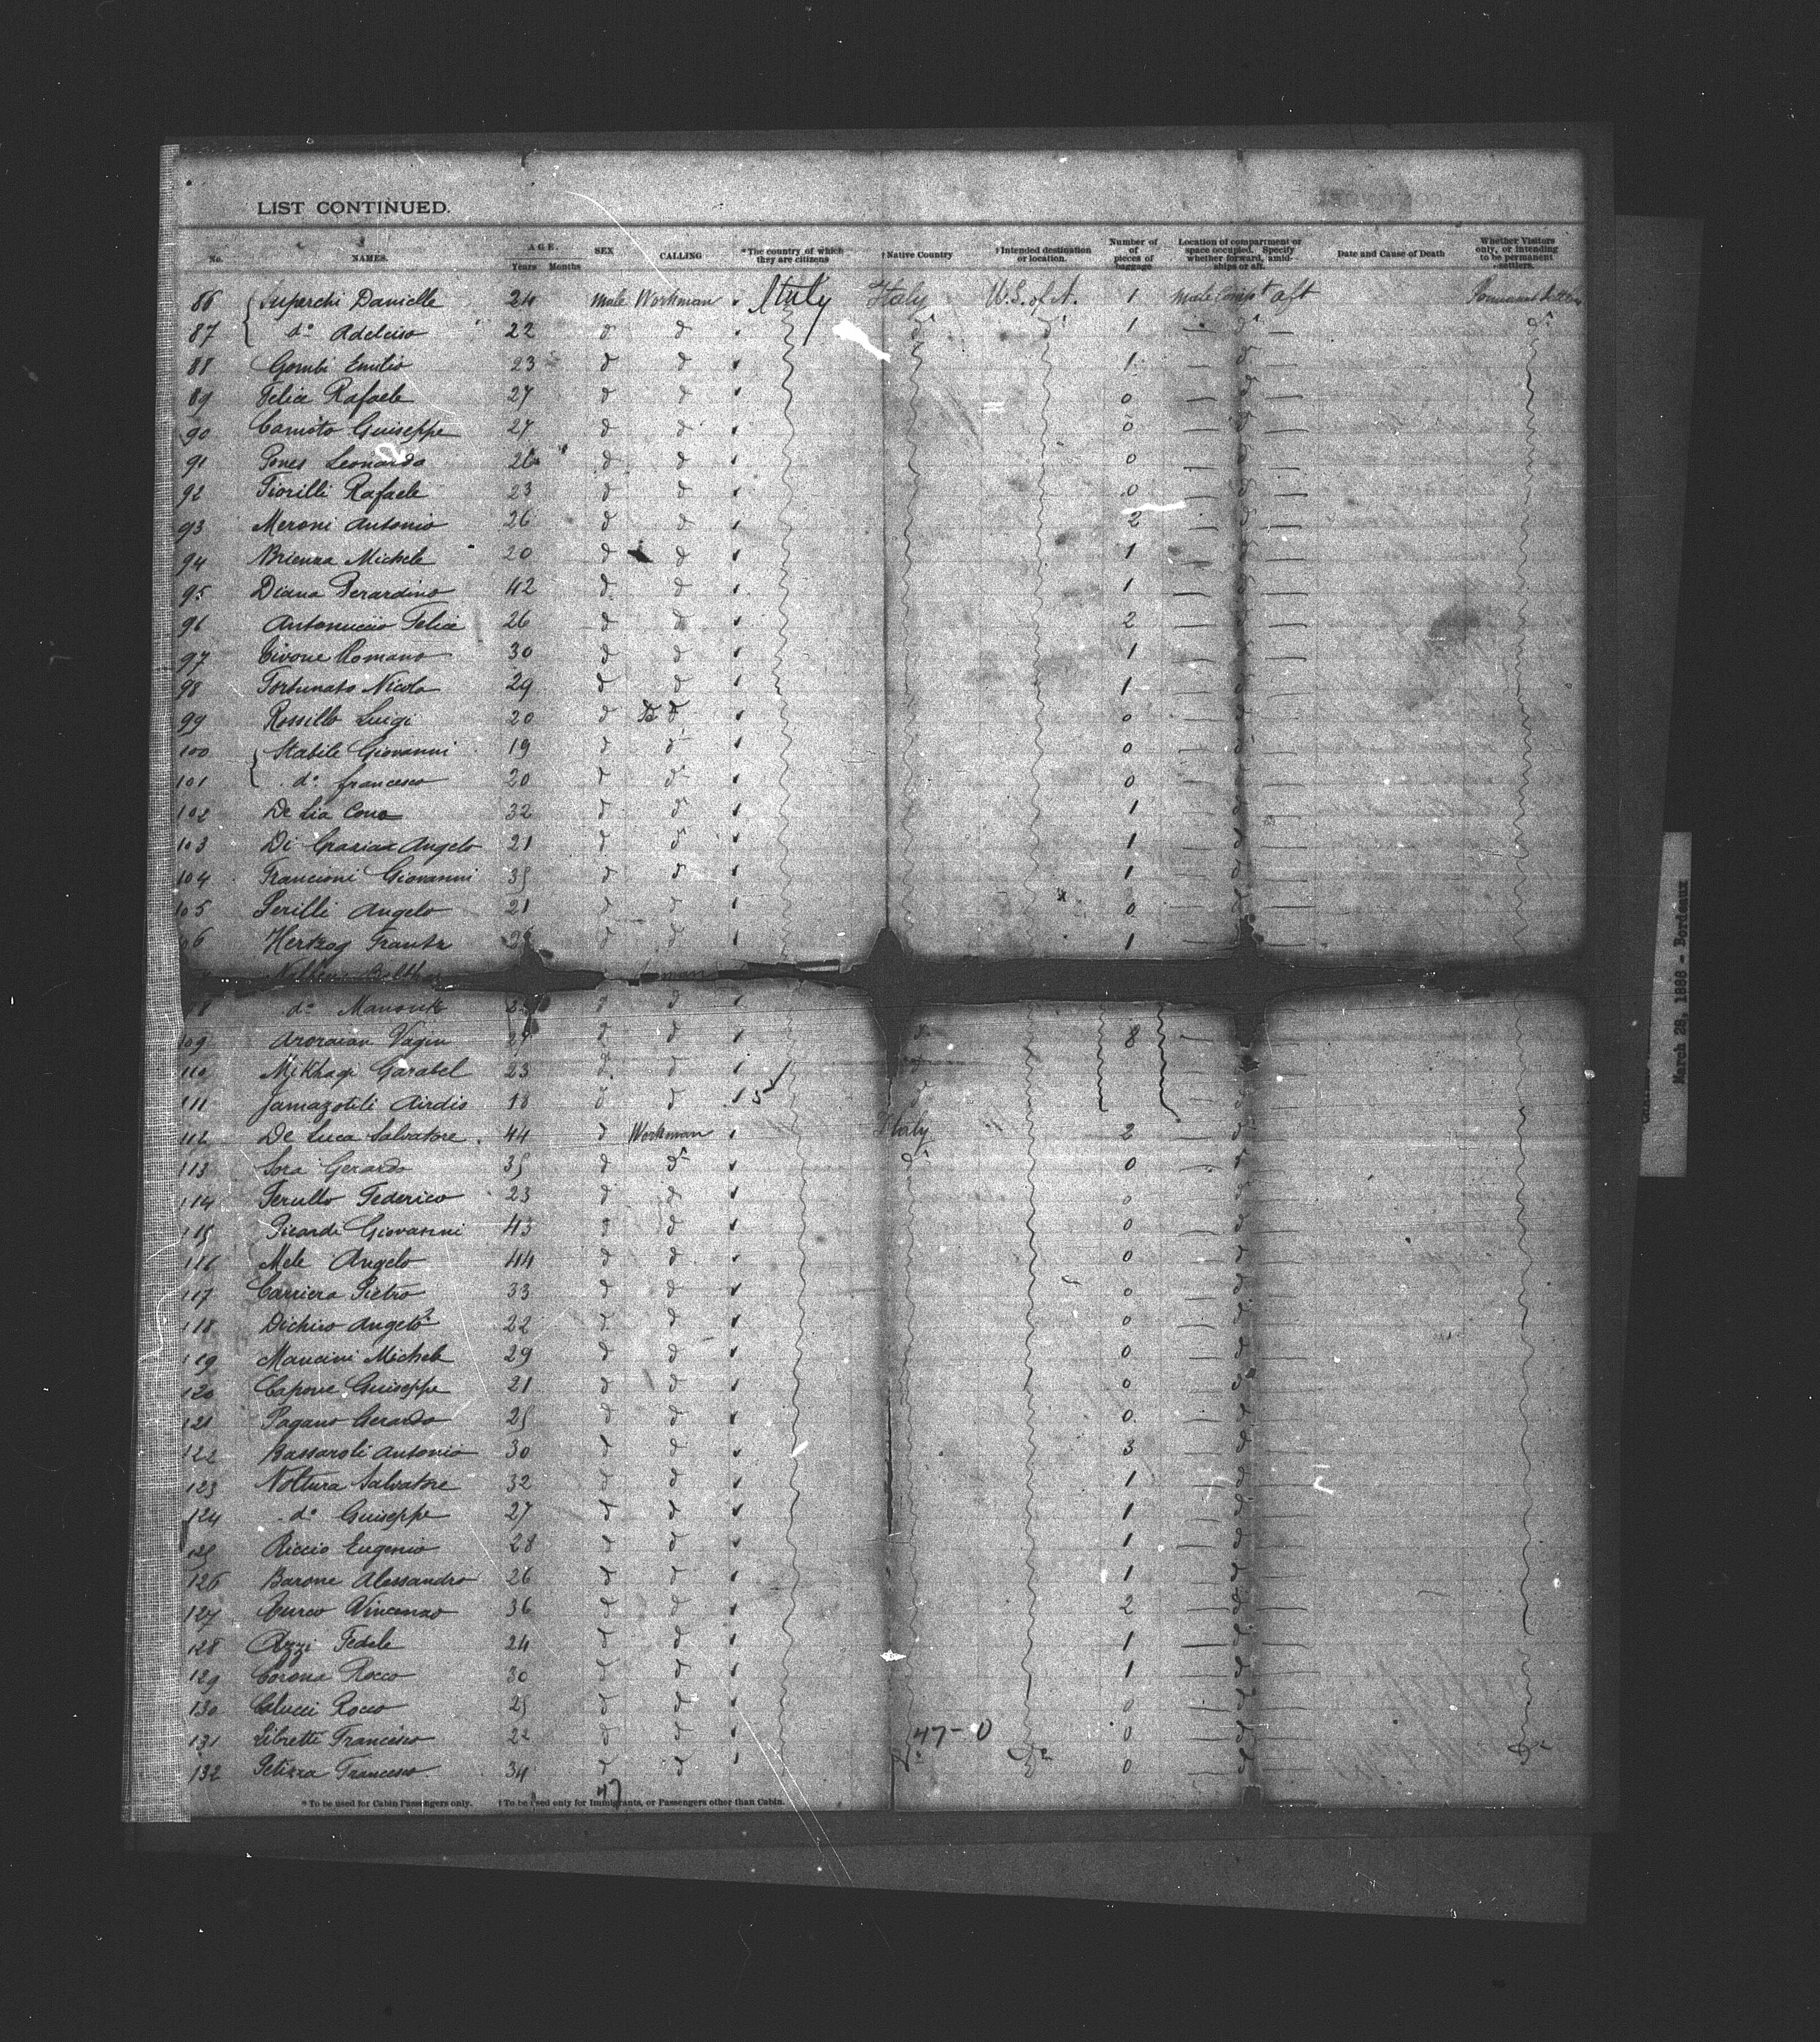 LIST CONTINUED.
No. NAMES. AGE. Years Months SEX CALLING *The country of which they are citizens †Native Country †Intended destination or location. Number of pieces of baggage Location of compartment or space occupied. Specify whether forward, amidships or aft. Date and Cause of Death Whether Visitors only, or intending to be permanent settlers.
86 Superchi Danielle 24 Male Workman Italy Italy U.S. of A. 1 Male Comp't aft
87 do Adelciso 22 d d do do 1 do do
88 Gombi Emilio 23 d d 1 d
89 Felice Rafaele 27 d d 0 d
90 Camoto Guiseppe 27 d d 0 d
91 Pones Leonardo 26 d d 0 d
92 Fiorilli Rafaele 23 d d 0 d
93 Meroni Antonio 26 d d 2 d
94 Brienza Michele 20 d d 1 d
95 Diana Berardino 42 d d 1 d
96 Antonuccio Felice 26 d d 2 d
97 Civone Romano 30 d d 1 d
98 Fortunato Nicola 29 d d 1 d
99 Rosillo Luigi 20 d d 0 d
100 Stabile Giovanni 19 d do 0 d
101 do francesco 20 d do 0 d
102 De Lia Cono 32 d d 1 d
103 Di Angelo 21 d d 1 d
104 Francioni Giovanni 35 d d 1 d
105 Perilli Angelo 21 d d 0 d
Hertzog Frantz d d 1 d
do d d
109 Vagin d d d 8
110 Garabel 23 d d d
111 Airdis 18 d d 15 d
112 De Luca Salvatore 44 d Workman Italy 2 d
113 Sora Gerardo 35 d do do 0 d
114 Ferullo Federico 23 d d 0 d
115 Picardi Giovannini 43 d d 0 d
116 Mele Angelo 44 d d 0 d
117 Carriera Pietro 33 d d 0 d
118 Dichiro Angelo 22 d d 0 d
119 Mancini Michele 29 d d 0 d
120 Capone Guiseppe 21 d d 0 d
121 Pagano Gerardo 25 d d 0 d
122 Bassaroli Antonio 30 d d 3 d
123 Noltura Salvatore 32 d d 1 d
124 do Guiseppe 27 d d 1 d
125 Riccio Eugenio 28 d d 1 d
126 Barone Alessandro 26 d d 1 d
127 Curco Vincenzo 36 d d 2 d
128 Azzi Fedele 24 d d 1 d
129 Corona Rocco 30 d d 1 d
130 Colucci Rocco 25 d d 0 d
131 Libretti Francesco 22 d d 47-0 0 d
132 Petizza Francesco 34 d d do do 0 d do
47
*To be used for Cabin Passengers only. †To be used only for Immigrants, or Passengers other than Cabin.
March 28, 1888 - Bordeaux